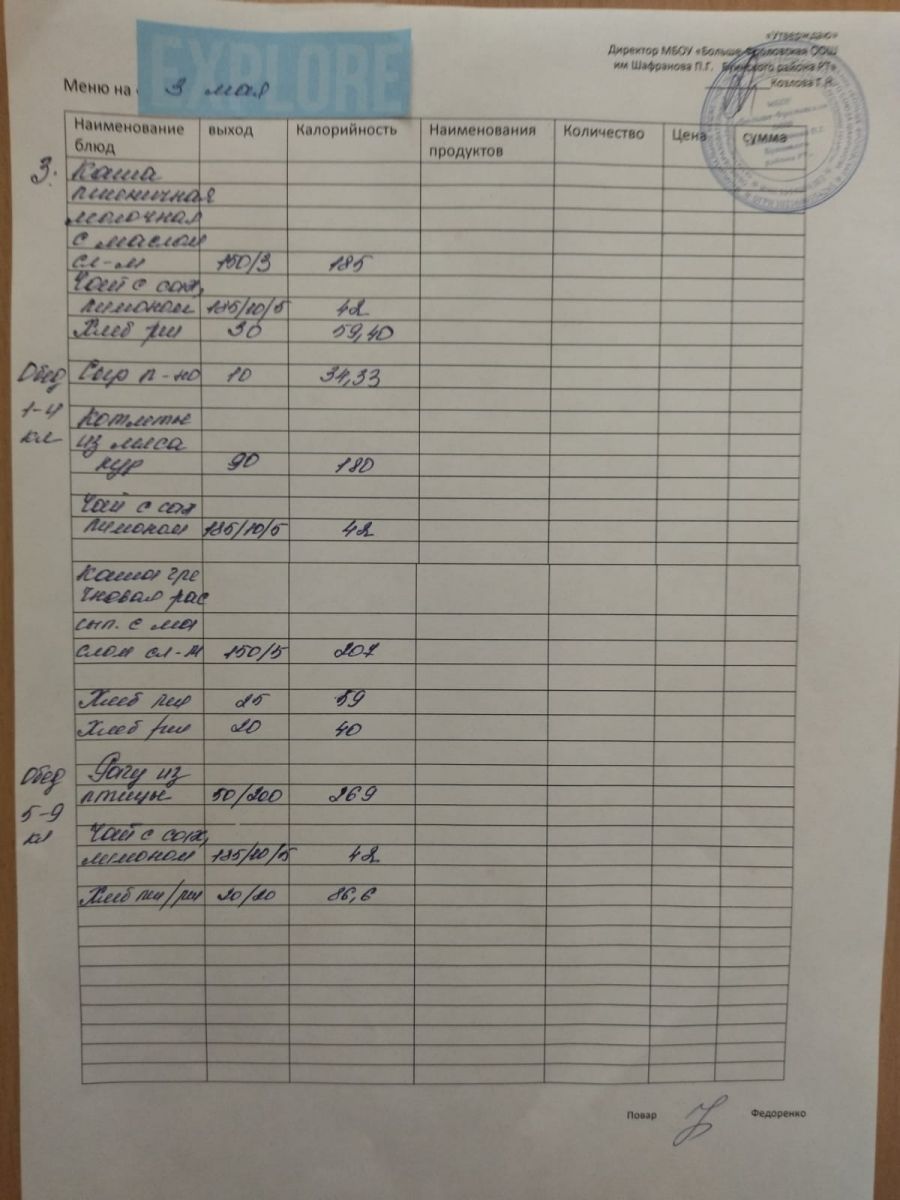 EXPLORE
«Утверждаю»
Директор МБОУ «Больше-Фроловская ООШ
им Шафранова П.Г. Буинского района РТ»
Козлова Г.Н.
Меню на 3 мая
Наименование блюд выход Калорийность Наименования продуктов Количество Цена сумма
З. Каша
пшеничная
молочная
с маслом
сл-м 150/3 185
Чай с сах,
лимоном 185/10/5 42
Хлеб рж 30 59,40
Обед Сыр п-но 10 34,33
1-4
кл
Котлеты
из мяса
кур 90 180
Чай с сах
лимоном 185/10/5 42
Каша гре
чновая рас
сып. с ма
слом сл-м 150/5 207
Хлеб пш 25 59
Хлеб рж 20 40
Обед Рагу из
птицы 50/200 269
5-9
кл
Чай с сах,
лимоном 185/10/5 42
Хлеб пш/рж 20/20 86,6
Повар Федоренко